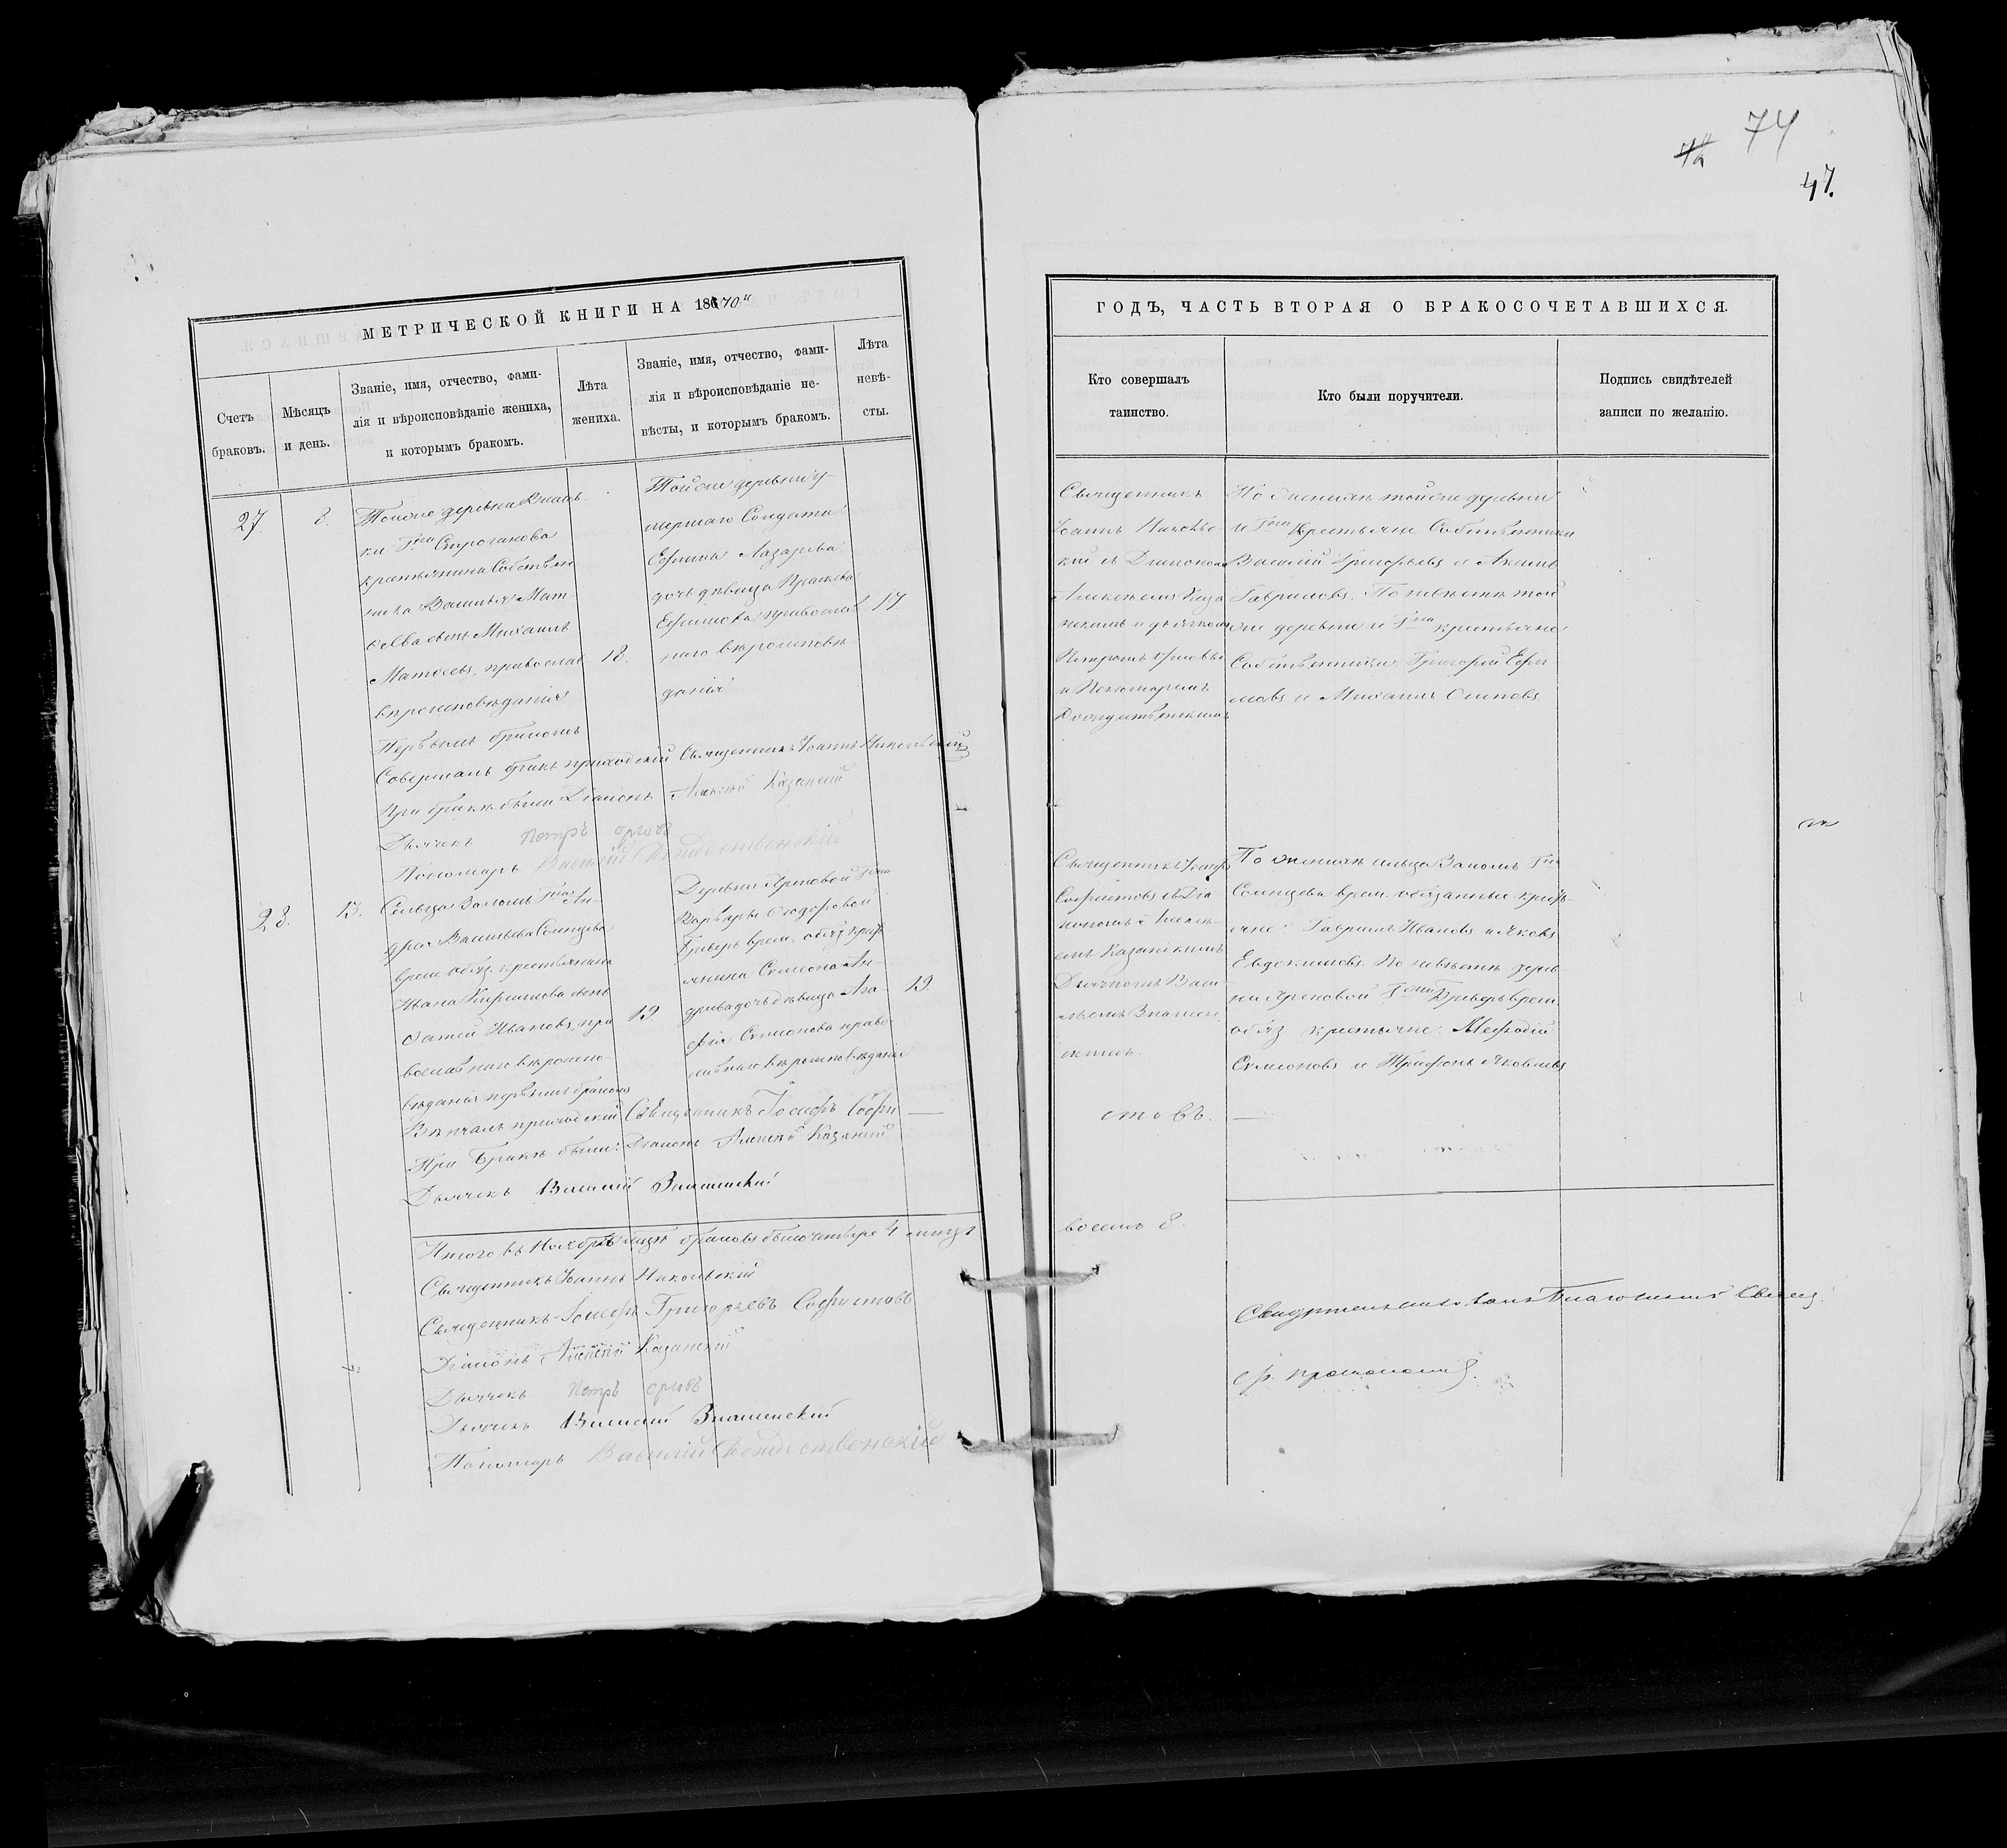 74
47.
МЕТРИЧЕСКОЙ КНИГИ НА 1870
Счетъ браковъ.
Мѣсяцъ и день.
Званіе, имя, отчество, фами-
лія и вѣроисповѣданіе жениха,
и которымъ бракомъ.
Лѣта жениха.
Званіе, имя, отчество, фами-
лія и вѣроисповѣданіе не-
вѣсты, и которымъ бракомъ.
Лѣта невѣ-
сты.
27.
8.
Тойже деревни
ки Гна Строганова
крестьянина Собствен
ника Василья Мат-
ѳеева сынъ Михаилъ
Матѳеевъ, православ
вѣроисповѣданія
Первымъ бракомъ
18.
Тойже деревни у-
мершаго Солдата
Ефима Лазарева
дочь дѣвица Праскева
Ефимова православ
наго вѣроисповѣ-
данія
17
Совершалъ бракъ приходскій Священникъ Іоаннъ Никольскій
При бракѣ были Діаконъ Алексѣй Казанскій
Дьячекъ Петръ Орловъ
Пономарь Василій Рождественскій
28.
13.
Сельца Гна Ан-
дрея Васильева Солнцева
врем. обяз. крестьянина
Ивана Кирилова сынъ
Ѳатей Ивановъ, пра
вославнаго вѣроиспо-
вѣданія первымъ бракомъ
19.
Деревни Гжи
Варвары Ѳедоровой
врем. обяз. крест
янина Симеона Ан-
дреева дочь дѣвица Ага-
фія Симеонова право-
славнаго вѣроисповѣданія
19.
Вѣнчалъ приходскій Священникъ Іосифъ Софи
При бракѣ были: Діаконъ Алексѣй Казанскій
Дьячекъ Василій Знаменскій
Итого въ Ноябрѣ мцѣ браковъ было четыре 4 лицъ
Священникъ Іоаннъ Никольскій
Священникъ Іосифъ Григорьевъ Софистовъ
Діаконъ Алексѣй Казанскій
Дьячекъ Петръ Орловъ
Дьячекъ Василій Знаменскій
Пономарь Василій Рождественскій
ГОДЪ, ЧАСТЬ ВТОРАЯ О БРАКОСОЧЕТАВШИХСЯ.
Кто совершалъ
таинство.
Кто были поручители.
Подпись свидѣтелей
записи по желанію.
Священникъ
Іоаннъ Никольс-
кій съ Діакономъ
Алексѣемъ Каза
нскимъ и дьячкомъ
Петромъ Орловы
и Пономаремъ
По женихѣ тойже деревни
и Гна Крестьяне Собственники
Василій Григорьевъ и Акимъ
Гавриловъ. По невѣстѣ той
же деревни и Гна крестьяне
Собственники: Григорій Ефи
мовъ и Михаилъ Осиповъ
Священникъ Іосифъ
Софистовъ съ Діа
кономъ Алексѣ-
емъ Казанскимъ
Дьячкомъ Васи-
льемъ Знамен
скимъ.
По женихѣ сельца Гна
Солнцева врем. обязанные крест-
яне: Гаврилъ Ивановъ и Яковъ
Евдокимовъ. По невѣстѣ дерев
ни Гжи врем.
обяз крестьяне: Меѳодій
Симеоновъ и Трифонъ Яковлевъ
стовъ.
восемь 8.
Свидѣтельствовалъ Благочинный Священ.